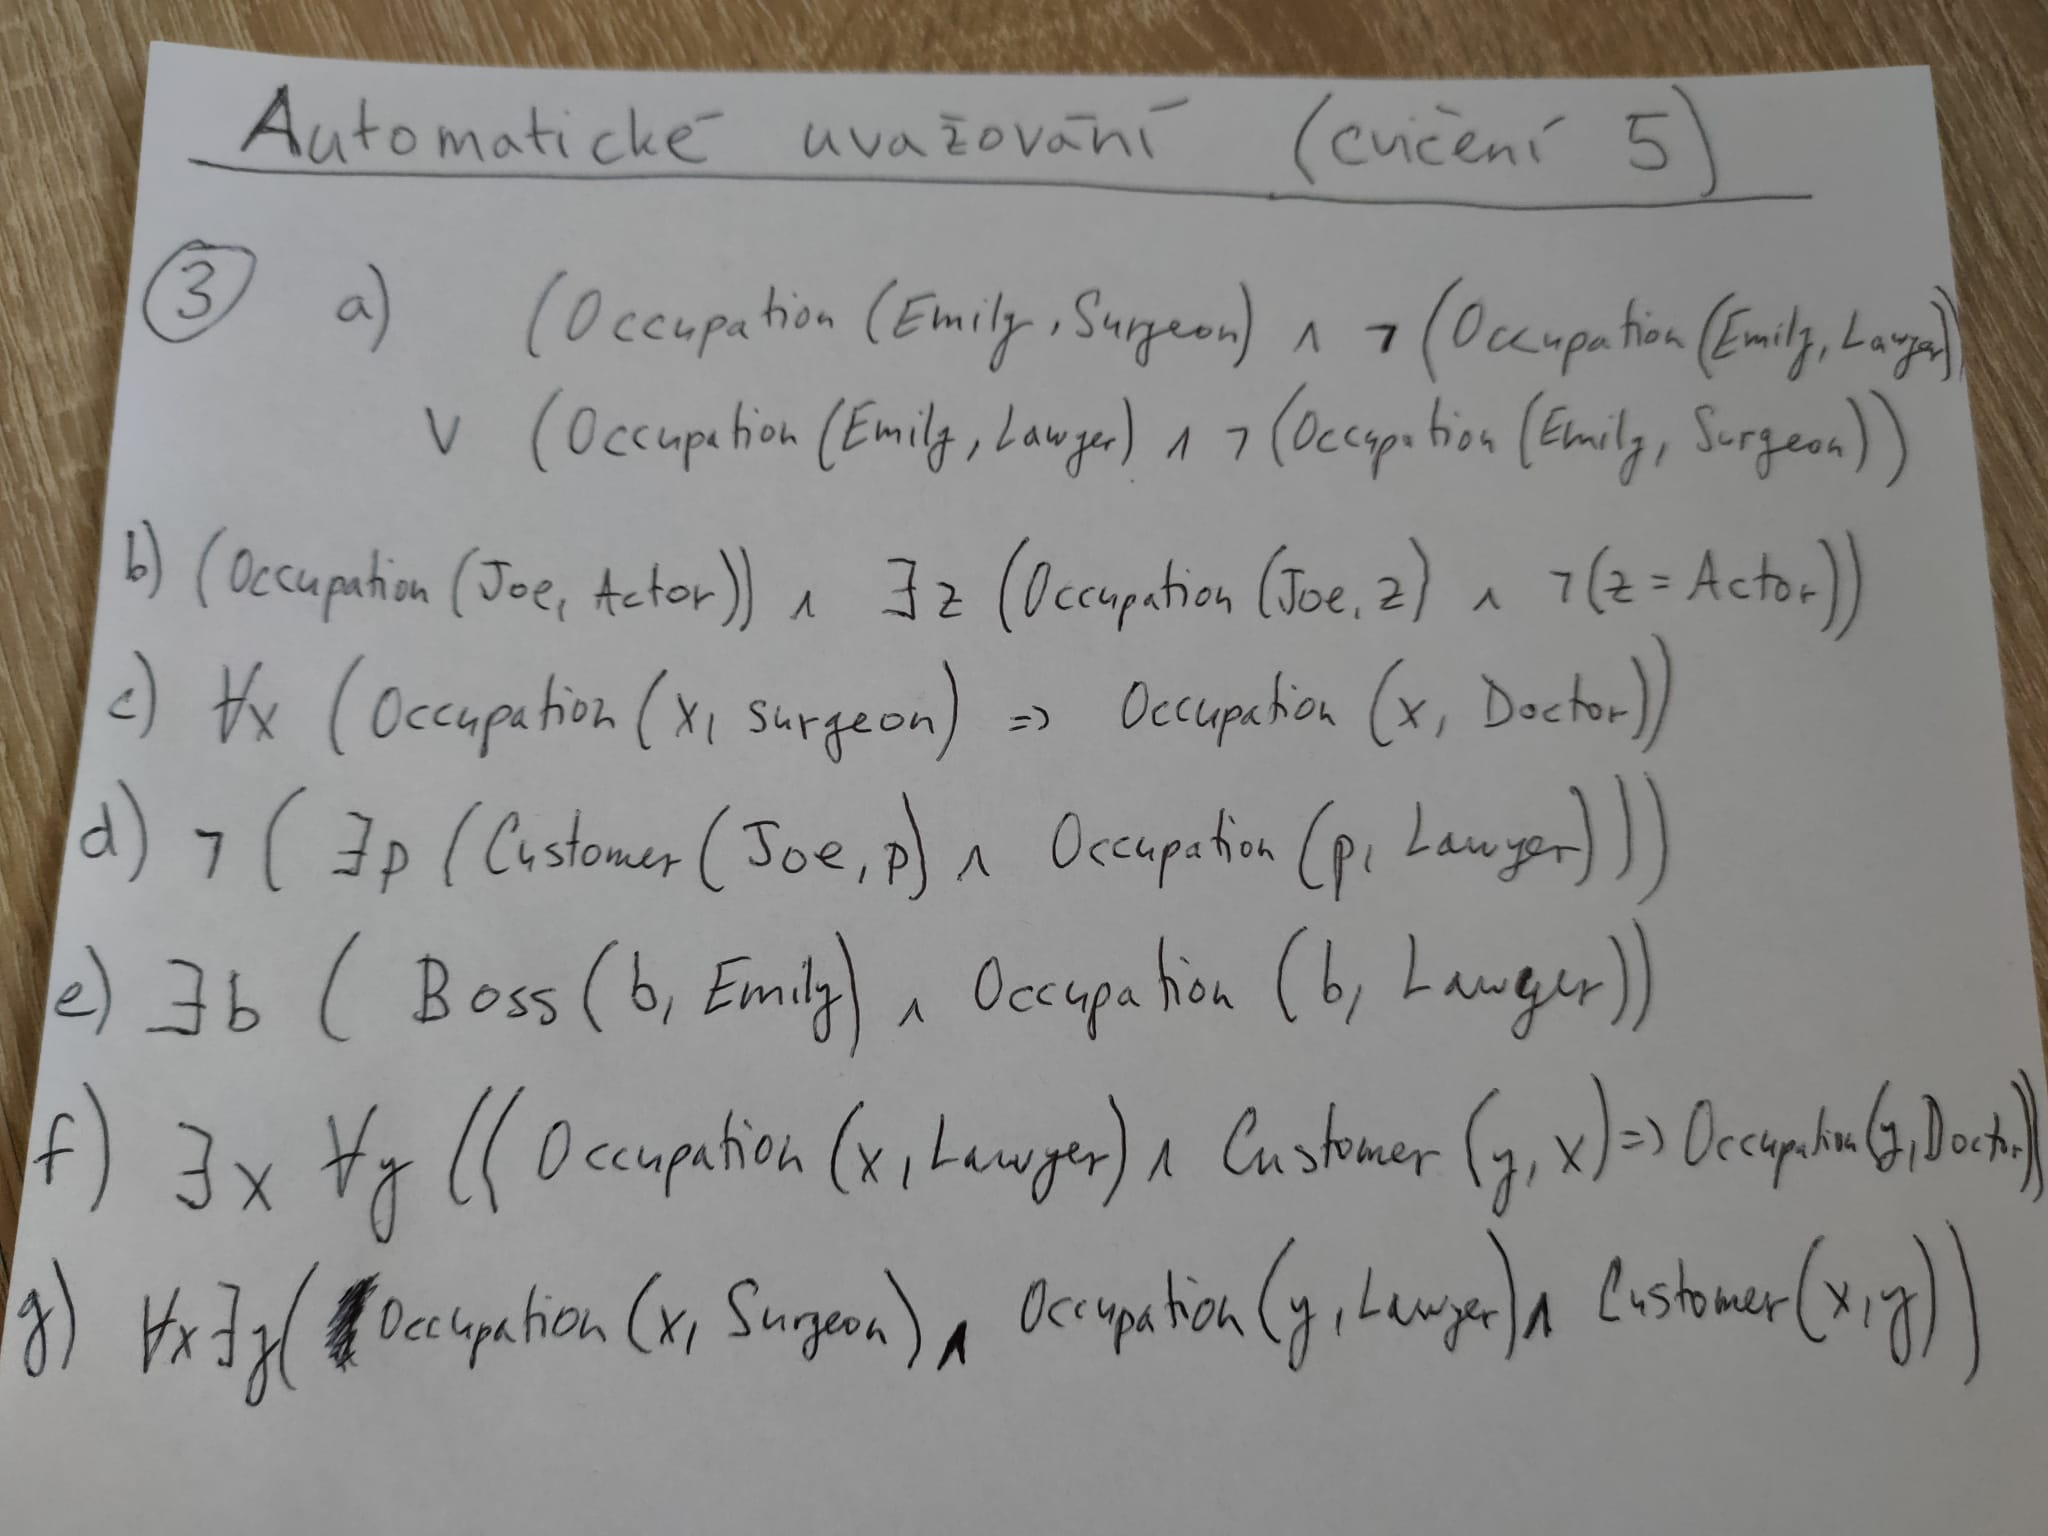 Automatické uvažování (cvičení 5)
③ a) (Occupation (Emily, Surgeon) ∧ ¬ (Occupation (Emily, Lawyer))
∨ (Occupation (Emily, Lawyer) ∧ ¬ (Occupation (Emily, Surgeon))
b) (Occupation (Joe, Actor)) ∧ ∃z (Occupation (Joe, z) ∧ ¬(z = Actor))
c) ∀x (Occupation (x, surgeon) => Occupation (x, Doctor))
d) ¬ ( ∃p (Customer (Joe, p) ∧ Occupation (p, Lawyer)))
e) ∃b ( Boss (b, Emily) ∧ Occupation (b, Lawyer))
f) ∃x ∀y (( Occupation (x, Lawyer) ∧ Customer (y, x) => Occupation (y, Doctor))
g) ∀x ∃y ( Occupation (x, Surgeon) ∧ Occupation (y, Lawyer) ∧ Customer (x, y))